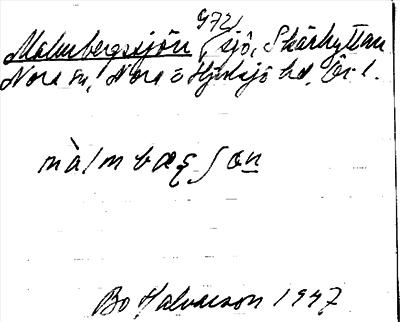 972,
Malmbergssjön, sjö, Skärhyttan
Nora sn, Nora o Hjulsjö hd, Ör. l.
màlmbæꞔʃon
Bo Halvarson 1947